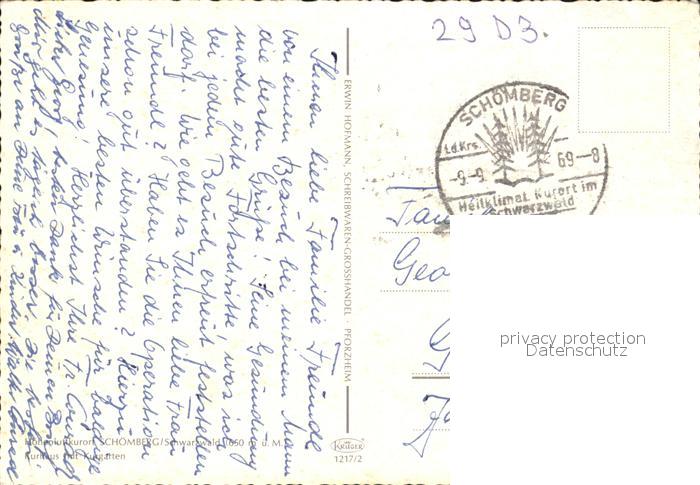 29 D3.
SCHÖMBERG
Ld.Krs.
-9.-9. 69--8
Heilklimat. Kurort im
Schwarzwald
Ihnen liebe Familie Freundl
von einem Besuch bei meinem Mann
die besten Grüße! Seine Gesundung
macht gute Fortschritte, was ich
bei jedem Besuch erfreut feststellen
darf. Wie geht es Ihnen liebe Frau
Freundl? Haben Sie die Operation
schon gut überstanden? Hierzu
unsere besten Wünsche für baldige
Genesung! Herzlichst Ihre Fr.
vielen Dank für Deinen
Mir geht es
Grüße an Deine Frau u. Kinder.
ERWIN HOFMANN, SCHREIBWAREN-GROSSHANDEL · PFORZHEIM
Geo
privacy protection
Datenschutz
Höhenluftkurort SCHÖMBERG/Schwarzwald (650 m ü. M.)
Kurhaus mit Kurgarten
KRÜGER
1217/2